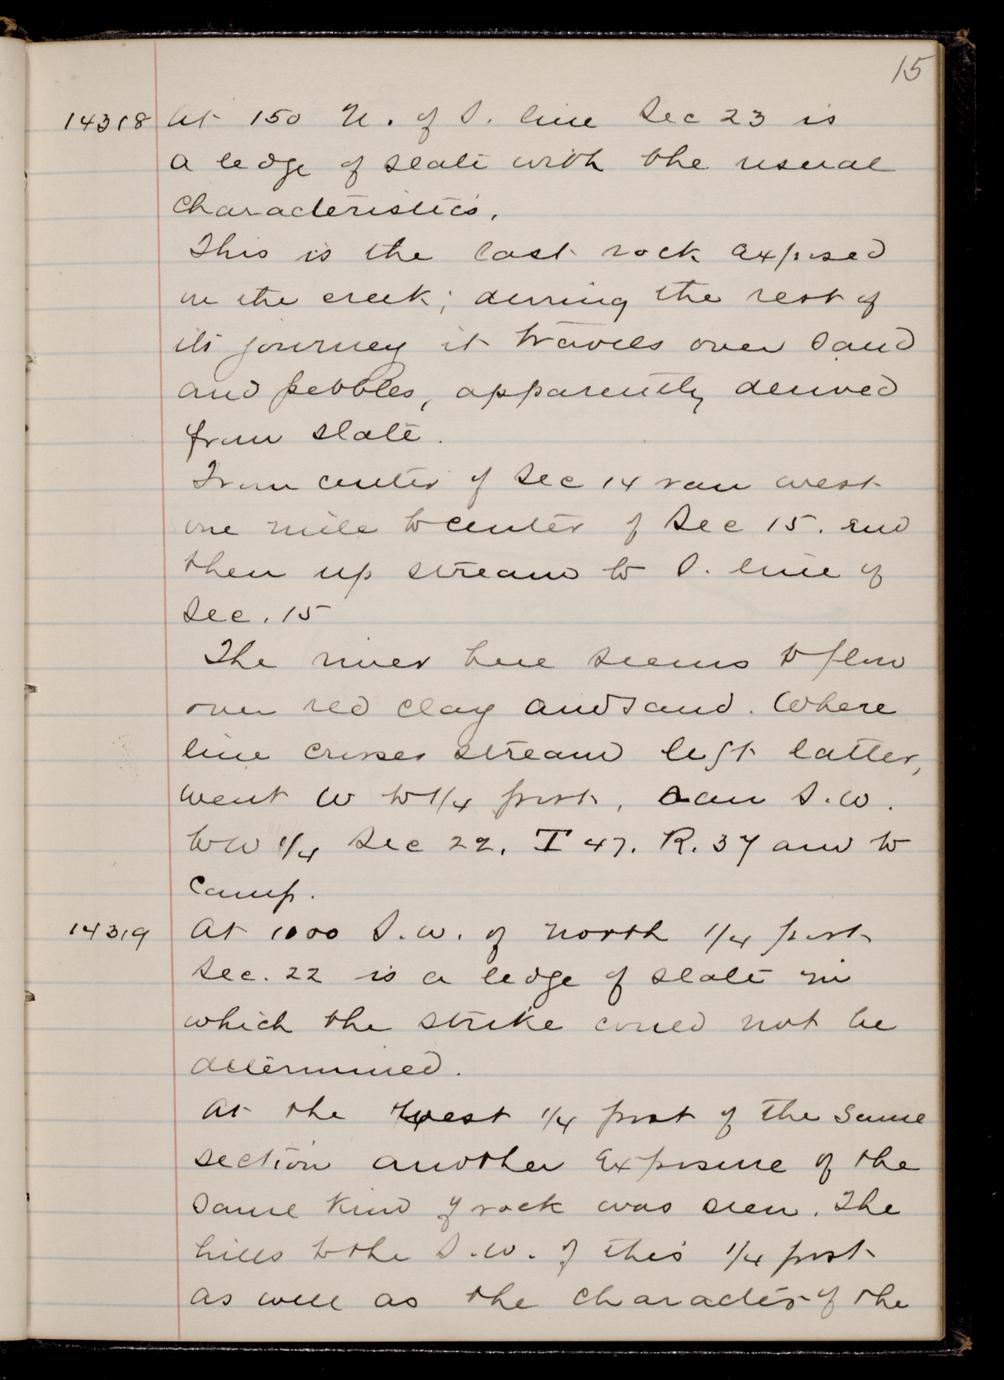 15
14318 At 150 N. of S. line Sec 23 is
a ledge of slate with the usual
characteristics.
This is the last rock exposed
on the creek; during the rest of
its journey it travels over sand
and pebbles, apparently derived
from slate.
From center of Sec 14 ran west
one mile to center of Sec 15. and
then up stream to S. line of
Sec. 15
The river here seems to flow
over red clay and sand. Where
line crosses stream left latter,
went W to 1/4 post, ran S.W.
to W 1/4 Sec 22, T 47. R. 37 and to
camp.
14319 At 1000 S.W. of north 1/4 post
Sec. 22 is a ledge of slate in
which the strike could not be
determined.
At the West 1/4 post of the same
section another exposure of the
same kind of rock was seen. The
hills to the S.W. of this 1/4 post
as well as the character of the